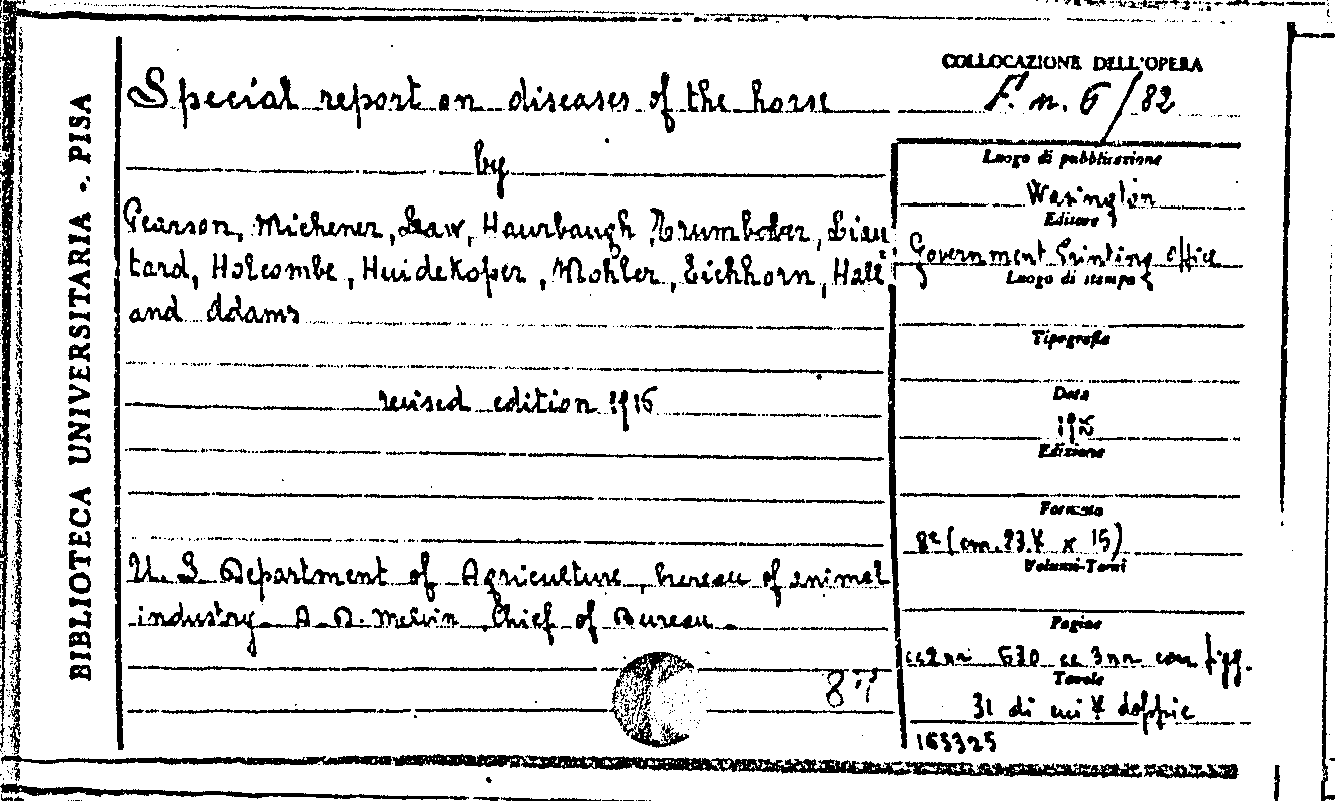 BIBLIOTECA UNIVERSITARIA - PISA
Special report on diseases of the horse
by
Pearson, Michener, Law, Haurbaugh, Trumbober, Liau
tard, Holcombe, Huidekoper, Mohler, Eichhorn, Hall
and Adams
revised edition 1916
U. S Department of Agriculture, bureau of animal
industry. A. D. Melvin Chief of Bureau.
87
COLLOCAZIONE DELL'OPERA
F. n. 6/82
Luogo di pubblicazione
Wasington
Editore
Government Printing office
Luogo di stampa
Tipografia
Data
Edizione
Formato
8° (cm. 23.4 x 15)
Volumi-Tomi
Pagine
cc2nn 630 cc 3nn con figg.
Tavole
31 di cui 4 doppie
163325